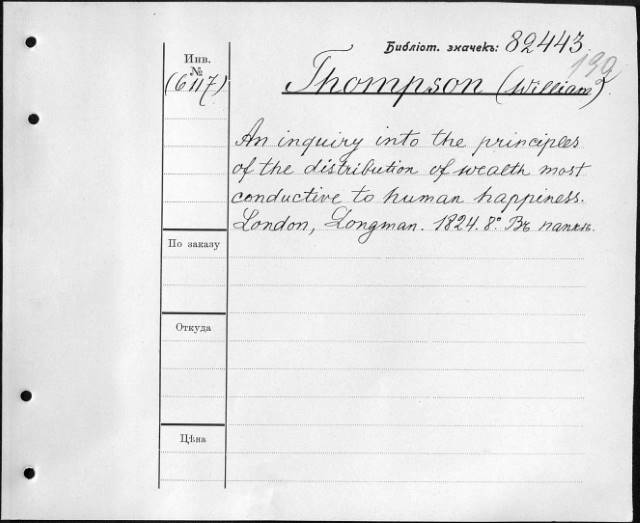 Библіот. значекъ: 82443
139
Инв.
№
(6117)
Thompson (William).
An inquiry into the principles
of the distribution of wealth most
conductive to human happiness.
London, Longman. 1824. 8° Въ папкѣ.
По заказу
Откуда
Цѣна